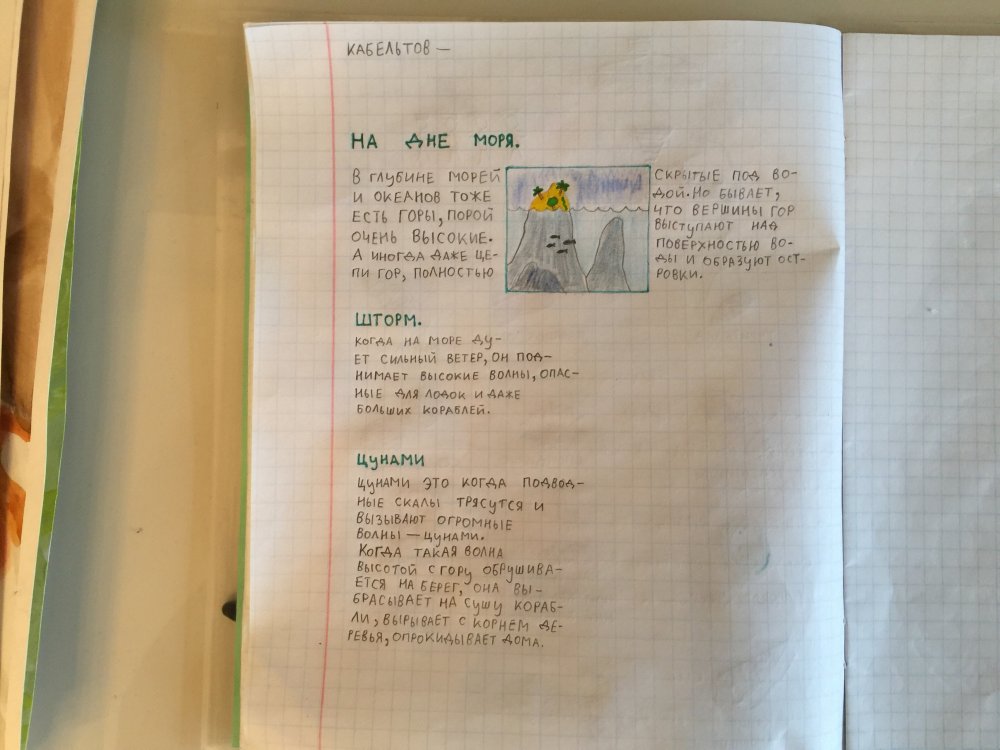 КАБЕЛЬТОВ —
НА ДНЕ МОРЯ.
В ГЛУБИНЕ МОРЕЙ
И ОКЕАНОВ ТОЖЕ
ЕСТЬ ГОРЫ, ПОРОЙ
ОЧЕНЬ ВЫСОКИЕ.
А ИНОГДА ДАЖЕ ЦЕ-
ПИ ГОР, ПОЛНОСТЬЮ
СКРЫТЫЕ ПОД ВО-
ДОЙ. НО БЫВАЕТ,
ЧТО ВЕРШИНЫ ГОР
ВЫСТУПАЮТ НАД
ПОВЕРХНОСТЬЮ ВО-
ДЫ И ОБРАЗУЮТ ОСТ-
РОВКИ.
ШТОРМ.
КОГДА НА МОРЕ ДУ-
ЕТ СИЛЬНЫЙ ВЕТЕР, ОН ПОД-
НИМАЕТ ВЫСОКИЕ ВОЛНЫ, ОПАС-
НЫЕ ДЛЯ ЛОДОК И ДАЖЕ
БОЛЬШИХ КОРАБЛЕЙ.
ЦУНАМИ
ЦУНАМИ ЭТО КОГДА ПОДВОД-
НЫЕ СКАЛЫ ТРЯСУТСЯ И
ВЫЗЫВАЮТ ОГРОМНЫЕ
ВОЛНЫ — ЦУНАМИ.
КОГДА ТАКАЯ ВОЛНА
ВЫСОТОЙ С ГОРУ ОБРУШИВА-
ЕТСЯ НА БЕРЕГ, ОНА ВЫ-
БРАСЫВАЕТ НА СУШУ КОРАБ-
ЛИ, ВЫРЫВАЕТ С КОРНЕМ ДЕ-
РЕВЬЯ, ОПРОКИДЫВАЕТ ДОМА.